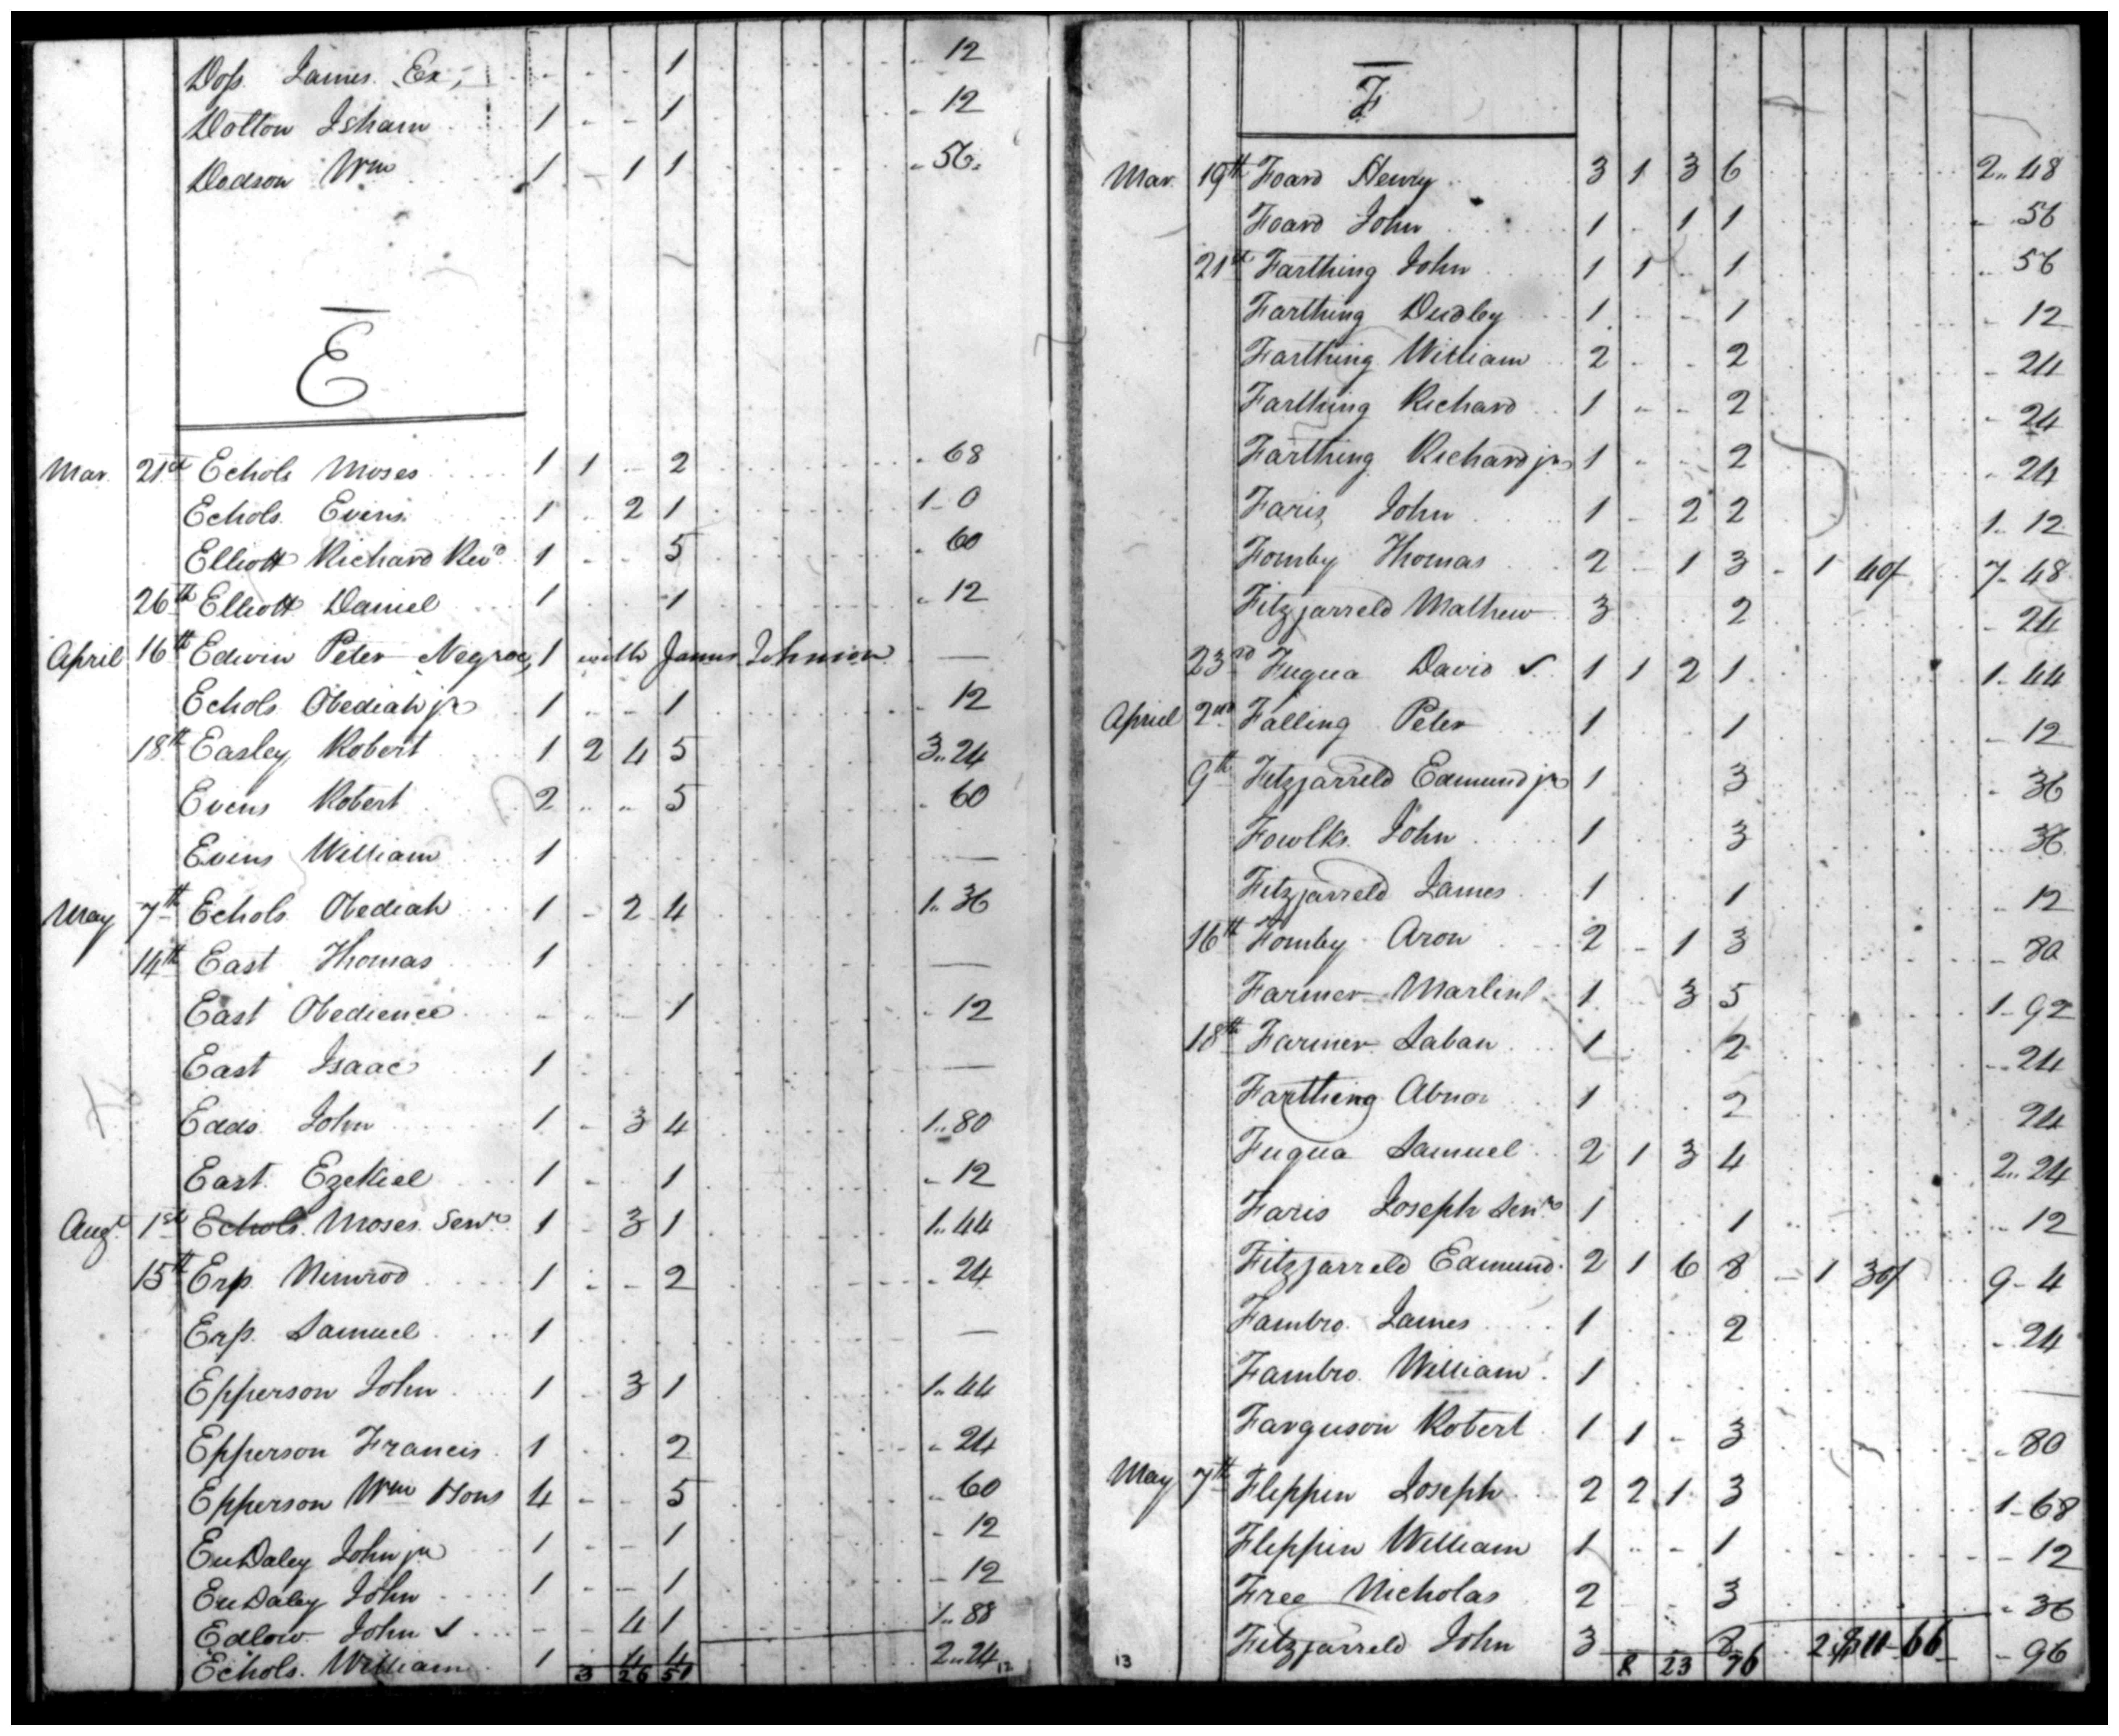 Doss James Ex, - - - 1 - 12
Dotton Isham 1 - - 1 - 12
Dodson Wm 1 - 1 1 - 56
E
Mar. 21st Echols Moses 1 1 - 2 - 68
Echols Evins 1 - 2 1 1 - 0
Elliott Richard Revd. 1 - - 5 - 60
26th Elliott Daniel 1 - - 1 - 12
April 16th Edwin Peter Negroe, 1 with James Johnson —
Echols Obediah jr 1 - - 1 - 12
18th Easley Robert 1 2 4 5 3.. 24
Evens Robert 2 - - 5 - 60
Evins William 1 —
May 7th Echols Obediah 1 - 2 4 1.. 36
14th East Thomas 1 —
East Obedience - - - 1 - 12
East Isaac 1 —
Edds John 1 - 3 4 1.. 80
East Ezekiel 1 - 1 - 12
Augt. 1st Echols Moses Senr. 1 - 3 1 1.. 44
15th Erp Nimrod 1 - - 2 - 24
Erp Samuel 1 —
Epperson John 1 - 3 1 1.. 44
Epperson Francis 1 - - 2 - 24
Epperson Wm Sons 4 - - 5 - 60
EuDaley John jr 1 - - 1 - 12
EuDaley John 1 - - 1 - 12
Edlow John ✓ - - 4 1 1.. 88
Echols William 1 - 4 4 2.. 24
3 26 51
12
F
Mar. 19th Foard Henry 3 1 3 6 2.. 48
Foard John 1 - 1 1 - 56
21st Farthing John 1 1 - 1 - 56
Farthing Dudley 1 - - 1 - 12
Farthing William 2 - - 2 - 24
Farthing Richard 1 - - 2 - 24
Farthing Richard jr 1 - - 2 - 24
Faris John 1 - 2 2 1.. 12
Fomby Thomas 2 - 1 3 - 1 40/ 7 - 48
Fitzjarreld Mathew 3 2 - 24
23rd Fuqua David ✓ 1 1 2 1 1 - 44
Apriel 2nd Falling Peter 1 1 - 12
9th Fitzjarreld Edmund jr 1 3 - 36
Fowlks John 1 3 36
Fitzjarreld James 1 1 - 12
16th Fomby Aron 2 - 1 3 - 80
Farmer Martin 1 3 5 1 - 92
18th Farmer Laban 1 2 - 24
Farthing Abnor 1 2 24
Fuqua Samuel 2 1 3 4 2.. 24
Faris Joseph Senr 1 1 - 12
Fitzjarreld Edmund 2 1 6 8 - 1 30/ 9 - 4
Fambro James 1 2 - 24
Fambro William 1 —
Farguson Robert 1 1 - 3 - 80
May 7th Fleppin Joseph 2 2 1 3 1 - 68
Fleppin William 1 - - 1 - 12
Free Nicholas 2 - - 3 - 36
Fitzjarreld John 3 8 - 96
13 8 23 76